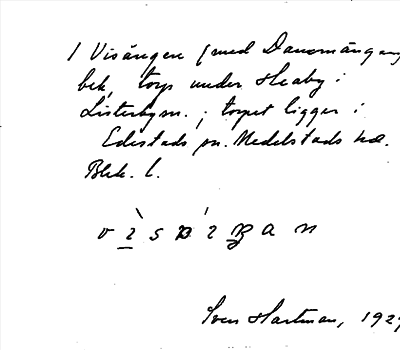 1 Visängen (med Dansmängen
bek, torp under Heaby i
Listerbysn.; torpet ligger i
Edestads sn. Medelstads hd.
Blek. l.
Sven Hartman, 192